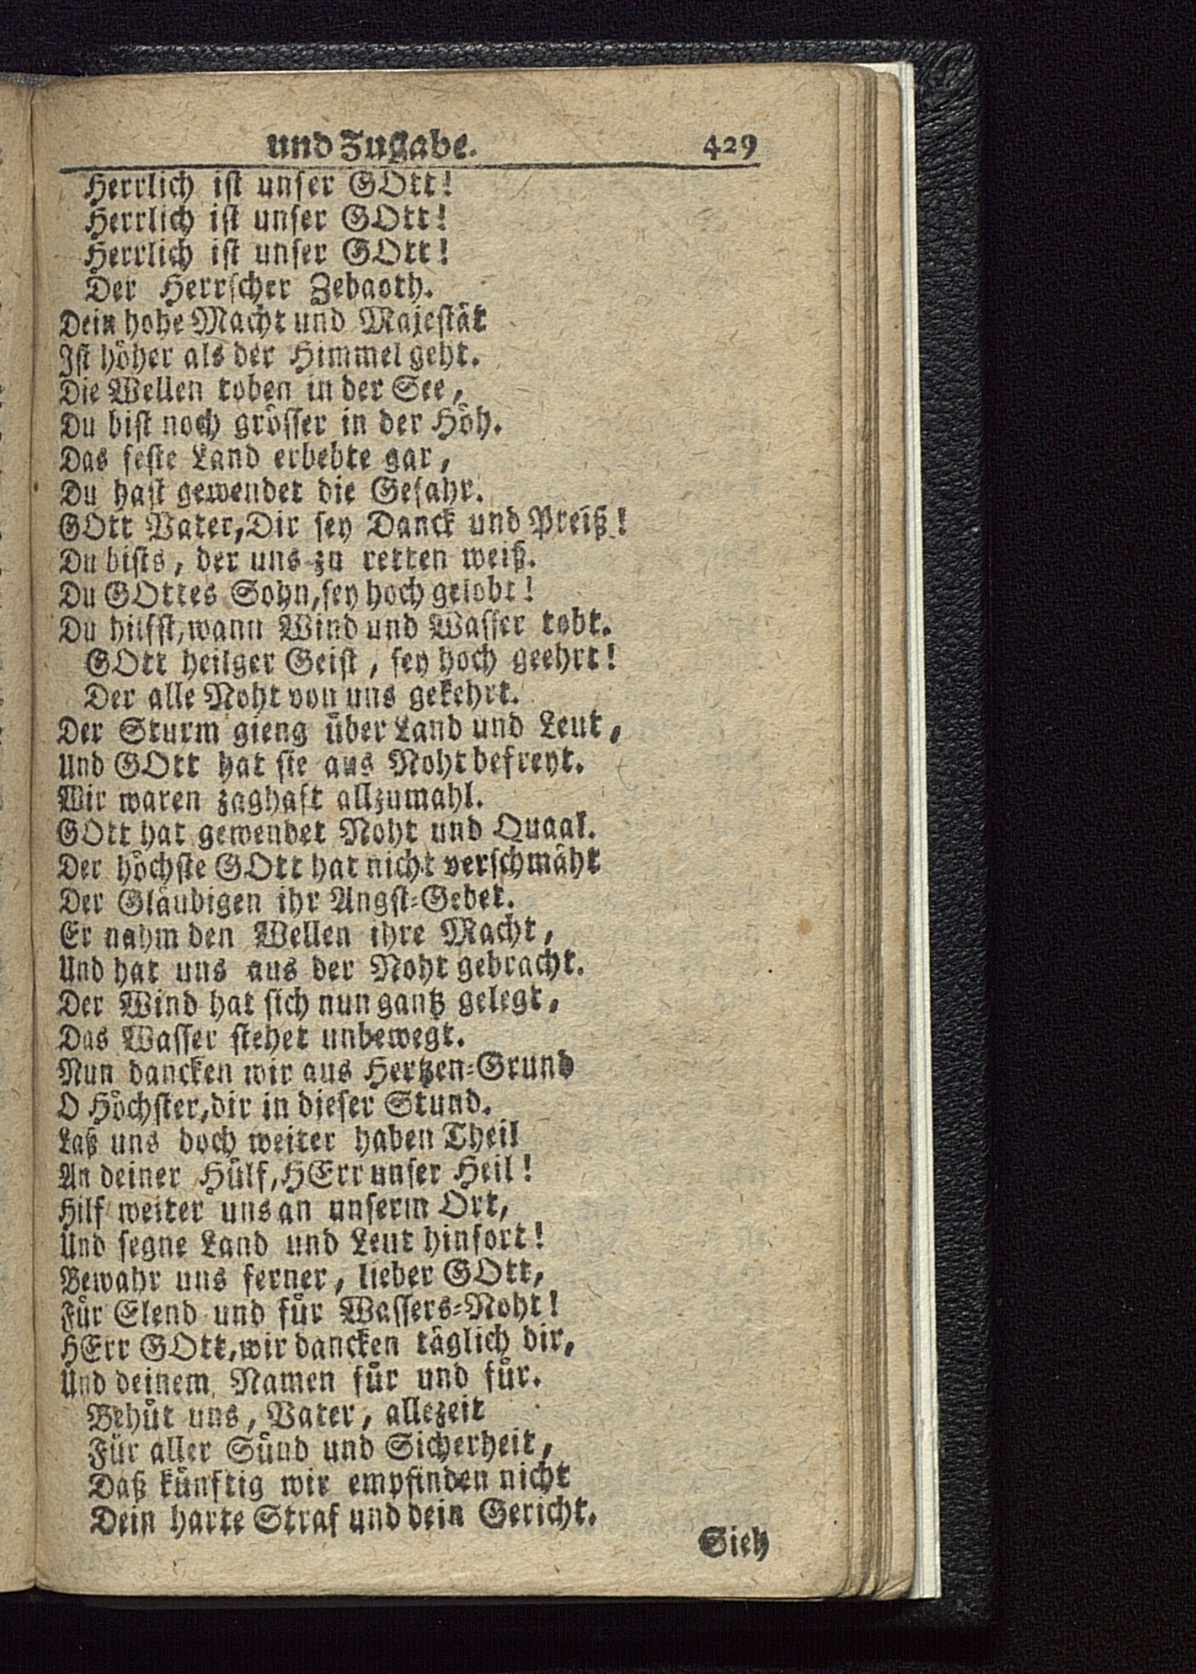 und Zugabe. 429
Herrlich ist unser GOtt!
Herrlich ist unser GOtt!
Herrlich ist unser GOtt!
Der Herrscher Zebaoth.
Dein hohe Macht und Majestät
Ist höher als der Himmel geht.
Die Wellen toben in der See,
Du bist noch grösser in der Höh.
Das feste Land erbebte gar,
Du hast gewendet die Gefahr.
GOtt Vater, Dir sey Danck und Preiß!
Du bists, der uns zu retten weiß.
Du GOttes Sohn, sey hoch gelobt!
Du hilfst, wann Wind und Wasser tobt.
GOtt heilger Geist, sey hoch geehrt!
Der alle Noht von uns gekehrt.
Der Sturm gieng über Land und Leut,
Und GOtt hat sie aus Noht befreyt.
Wir waren zaghaft allzumahl.
GOtt hat gewendet Noht und Quaal.
Der höchste GOtt hat nicht verschmäht
Der Gläubigen ihr Angst-Gebet.
Er nahm den Wellen ihre Macht,
Und hat uns aus der Noht gebracht.
Der Wind hat sich nun gantz gelegt,
Das Wasser stehet unbewegt.
Nun dancken wir aus Hertzen-Grund
O Höchster, dir in dieser Stund.
Laß uns doch weiter haben Theil
An deiner Hülf, HErr unser Heil!
Hilf weiter uns an unserm Ort,
Und segne Land und Leut hinfort!
Bewahr uns ferner, lieber GOtt,
Für Elend und für Wassers-Noht!
HErr GOtt, wir dancken täglich dir,
Und deinem Namen für und für.
Behüt uns, Vater, allezeit
Für aller Sünd und Sicherheit,
Daß künftig wir empfinden nicht
Dein harte Straf und dein Gericht.
Sieh